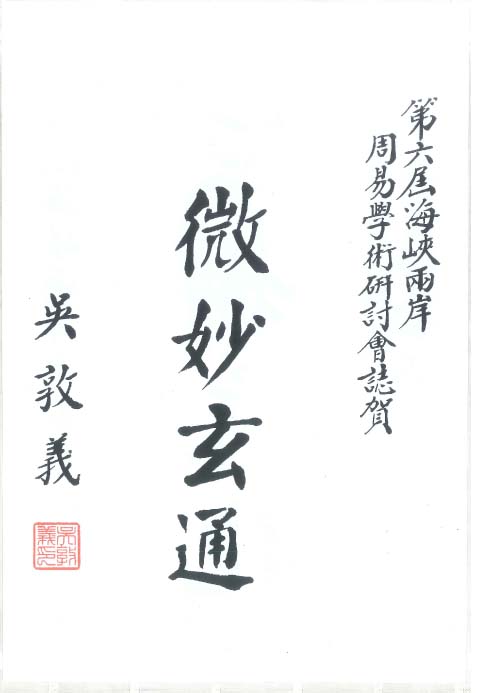 第六屆海峽兩岸
周易學術研討會誌賀
微妙玄通
吳敦義
吳敦
義印